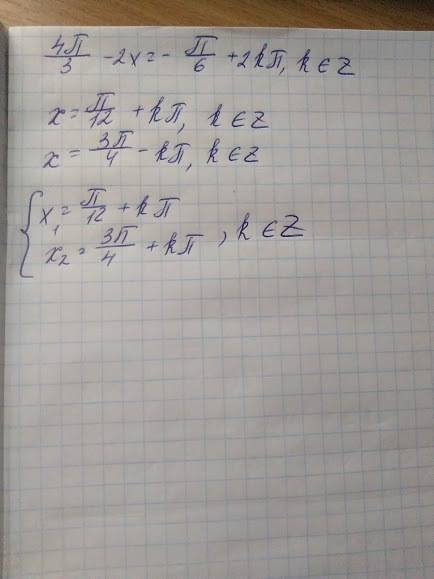 4π/3 - 2x = - π/6 + 2kπ, k ∈ Z
x = π/12 + kπ, k ∈ Z
x = 3π/4 - kπ, k ∈ Z
{ x₁ = π/12 + kπ
x₂ = 3π/4 + kπ , k ∈ Z